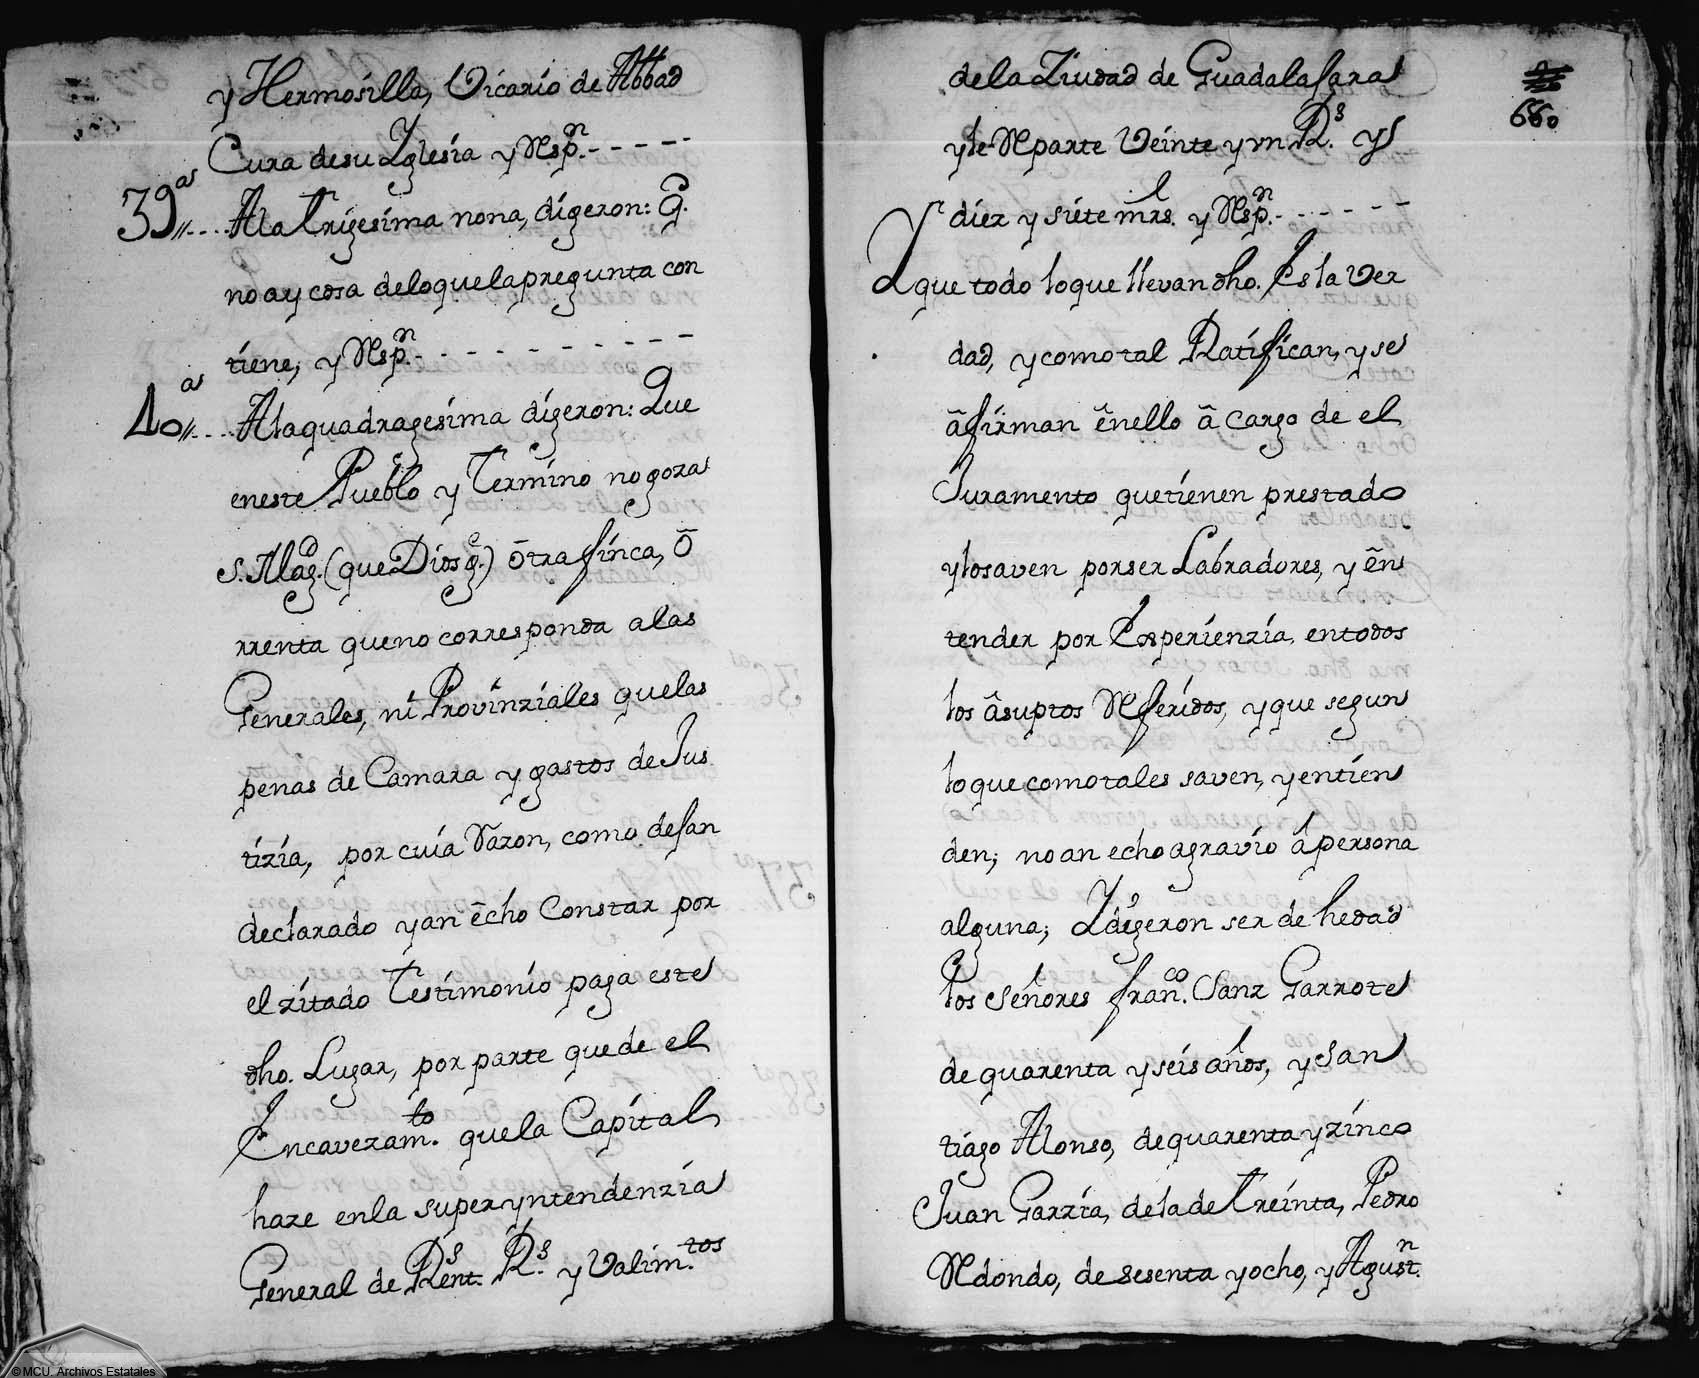 y Hermosilla, Vicario de Abbad
Cura de su Yglesia y Resp.n - - - - -
39.as A la Trigesima nona, digeron: Q.
no ay cosa de lo que la pregunta con
tiene, y Resp.n - - - - - - - - - -
40.as A la quadragesima digeron: Que
en este Pueblo y Termino no goza
S. Mag.d (que Dios g.e) òtra finca, ò
rrenta que no corresponda a las
Generales, ni Provinziales que las
penas de Camara y gastos de Jus
tizia, por cuia Razon, como dejan
declarado y an êcho Constar por
el zitado Testimonio paga este
dho. Lugar, por parte que de el
Encavezam.to que la Capital
haze en la superyntendenzia
General de Rent.s R.s y Valim.tos
de la Ziudad de Guadalajara
660
y le Reparte Veinte y un R.s y
diez y siete mrs. y Resp.n - - - - - -
Y que todo lo que llevan dho. Es la Ver
dad, y como tal Ratifican, y se
âfirman ênello â cargo de el
Juramento que tienen prestado
y lo saven por ser Labradores, y ên
tender por Esperienzia en todos
los âsuptos Referidos, y que segun
lo que como tales saven, y entien
den; no an echo agravio â persona
alguna; Y digeron ser de hedad
los Señores fran.co Sanz Garrote
de quarenta y seis años, y San
tiago Alonso, de quarenta y zinco
Juan Garzia, de la de Treinta, Pedro
Redondo, de sesenta y ocho, y Agust.n
© MCU. Archivos Estatales